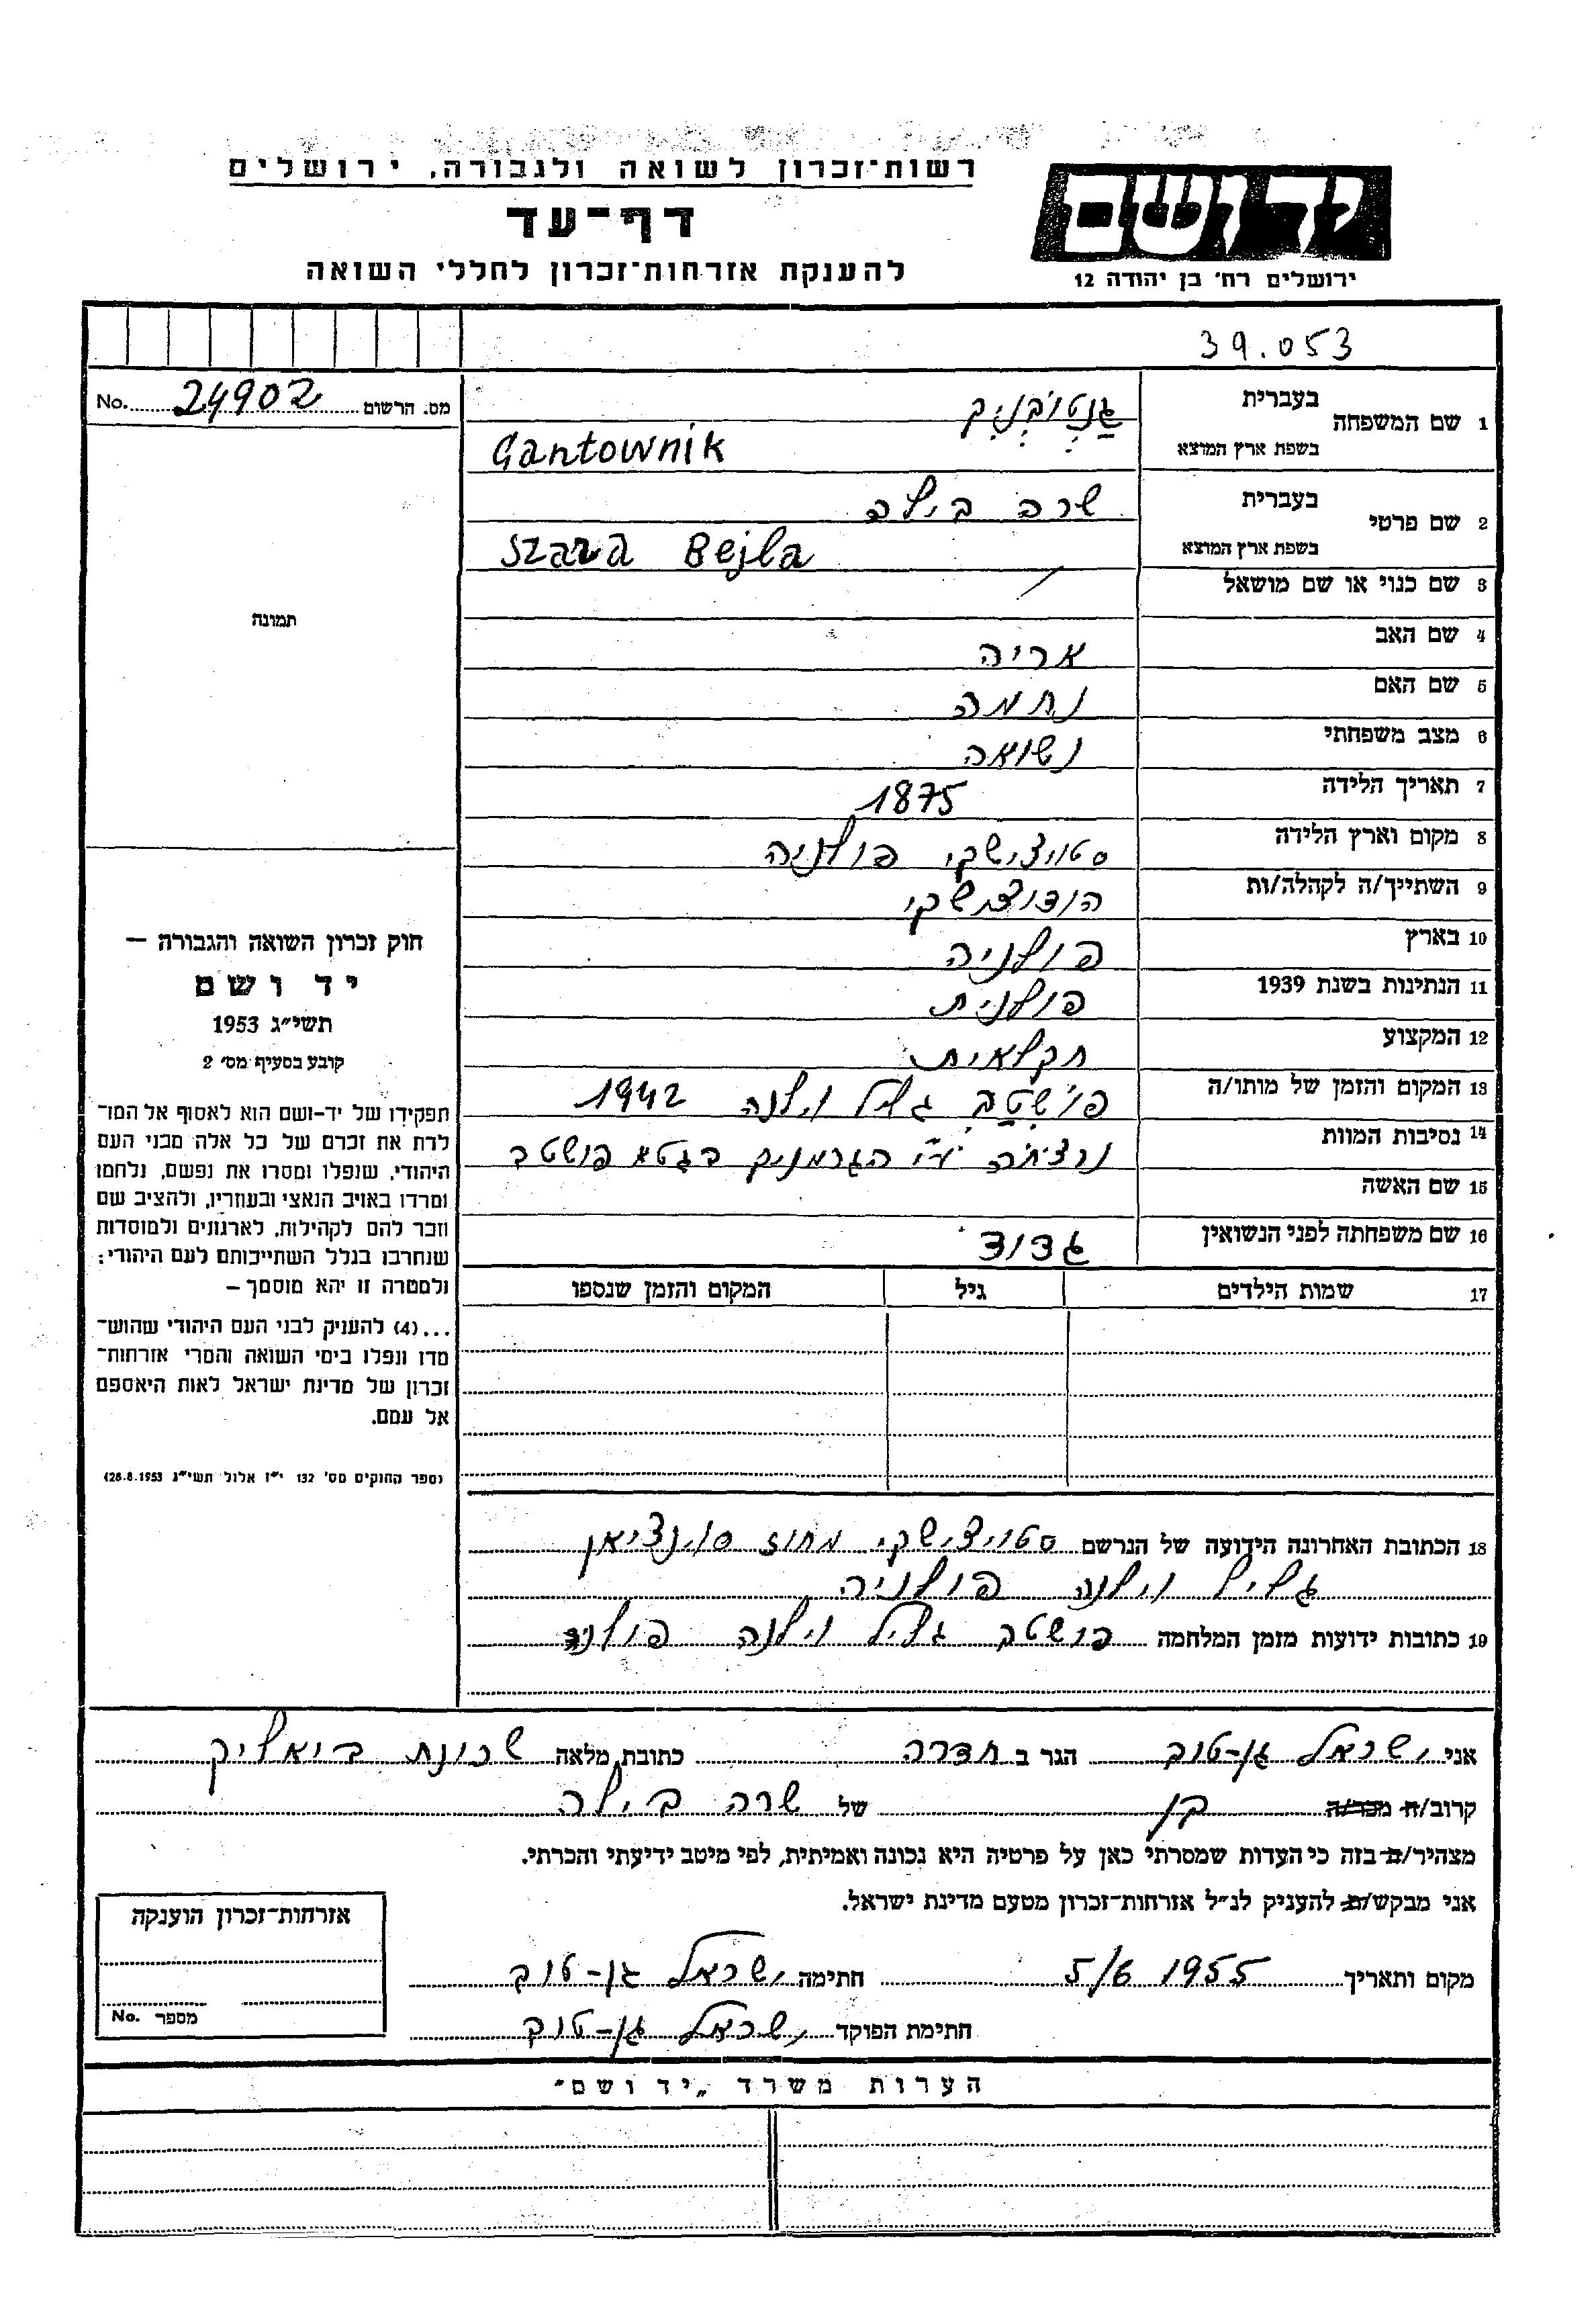 רשות־זכרון לשואה ולגבורה, ירושלים
דף־עד
להענקת אזרחות־זכרון לחללי השואה
יד ושם
ירושלים רח׳ בן יהודה 12
39.053
מס. הרשום 24902 No.
1 שם המשפחה בעברית גַנְטוֹבְנִיק
בשפת ארץ המוצא Gantownik
2 שם פרטי בעברית שרה בילה
בשפת ארץ המוצא Szara Bejla
3 שם כנוי או שם מושאל /
4 שם האב אריה
5 שם האם נחמה
6 מצב משפחתי נשואה
7 תאריך הלידה 1875
8 מקום וארץ הלידה סטויצישקי פולניה
9 השתייך/ה לקהלה/ות הודוצישקי
10 בארץ פולניה
11 הנתינות בשנת 1939 פולנית
12 המקצוע חקלאית
13 המקום והזמן של מותו/ה פושטב גליל וילנה 1942
14 נסיבות המוות נרציחה ע״י הגרמנים בגטא פושטב
15 שם האשה
16 שם משפחתה לפני הנשואין גדוד
17 שמות הילדים גיל המקום והזמן שנספו
תמונה
חוק זכרון השואה והגבורה –
יד ושם
תשי״ג 1953
קובע בסעיף מס׳ 2
תפקידו של יד־ושם הוא לאסוף אל המו־
לדת את זכרם של כל אלה מבני העם
היהודי, שנפלו ומסרו את נפשם, נלחמו
ומרדו באויב הנאצי ובעוזריו, ולהציב שם
וזכר להם לקהילות, לארגונים ולמוסדות
שנחרבו בגלל השתייכותם לעם היהודי;
ולמטרה זו יהא מוסמך –
...(4) להעניק לבני העם היהודי שהוש־
מדו ונפלו בימי השואה והמרי אזרחות־
זכרון של מדינת ישראל לאות היאספם
אל עמם.
(ספר החוקים מס׳ 132 י״ז אלול תשי״ג 28.8.1953)
18 הכתובת האחרונה הידועה של הנרשם סטויצישקי מחוז סוינציאן
גליל וילנה פולניה
19 כתובות ידועות מזמן המלחמה פושטב גליל וילנה פולניה
אני ישראל גן-טוב הגר ב חדרה כתובת מלאה שכונת ביאליק
קרוב/ח מכר/ה בן של שרה בילה
מצהיר/ה בזה כי העדות שמסרתי כאן על פרטיה היא נכונה ואמיתית, לפי מיטב ידיעתי והכרתי.
אני מבקש/ת להעניק לנ״ל אזרחות־זכרון מטעם מדינת ישראל.
מקום ותאריך 5/6 1955 חתימה ישראל גן-טוב
חתימת הפוקד ישראל גן-טוב
אזרחות־זכרון הוענקה
מספר No.
הערות משרד „יד ושם״